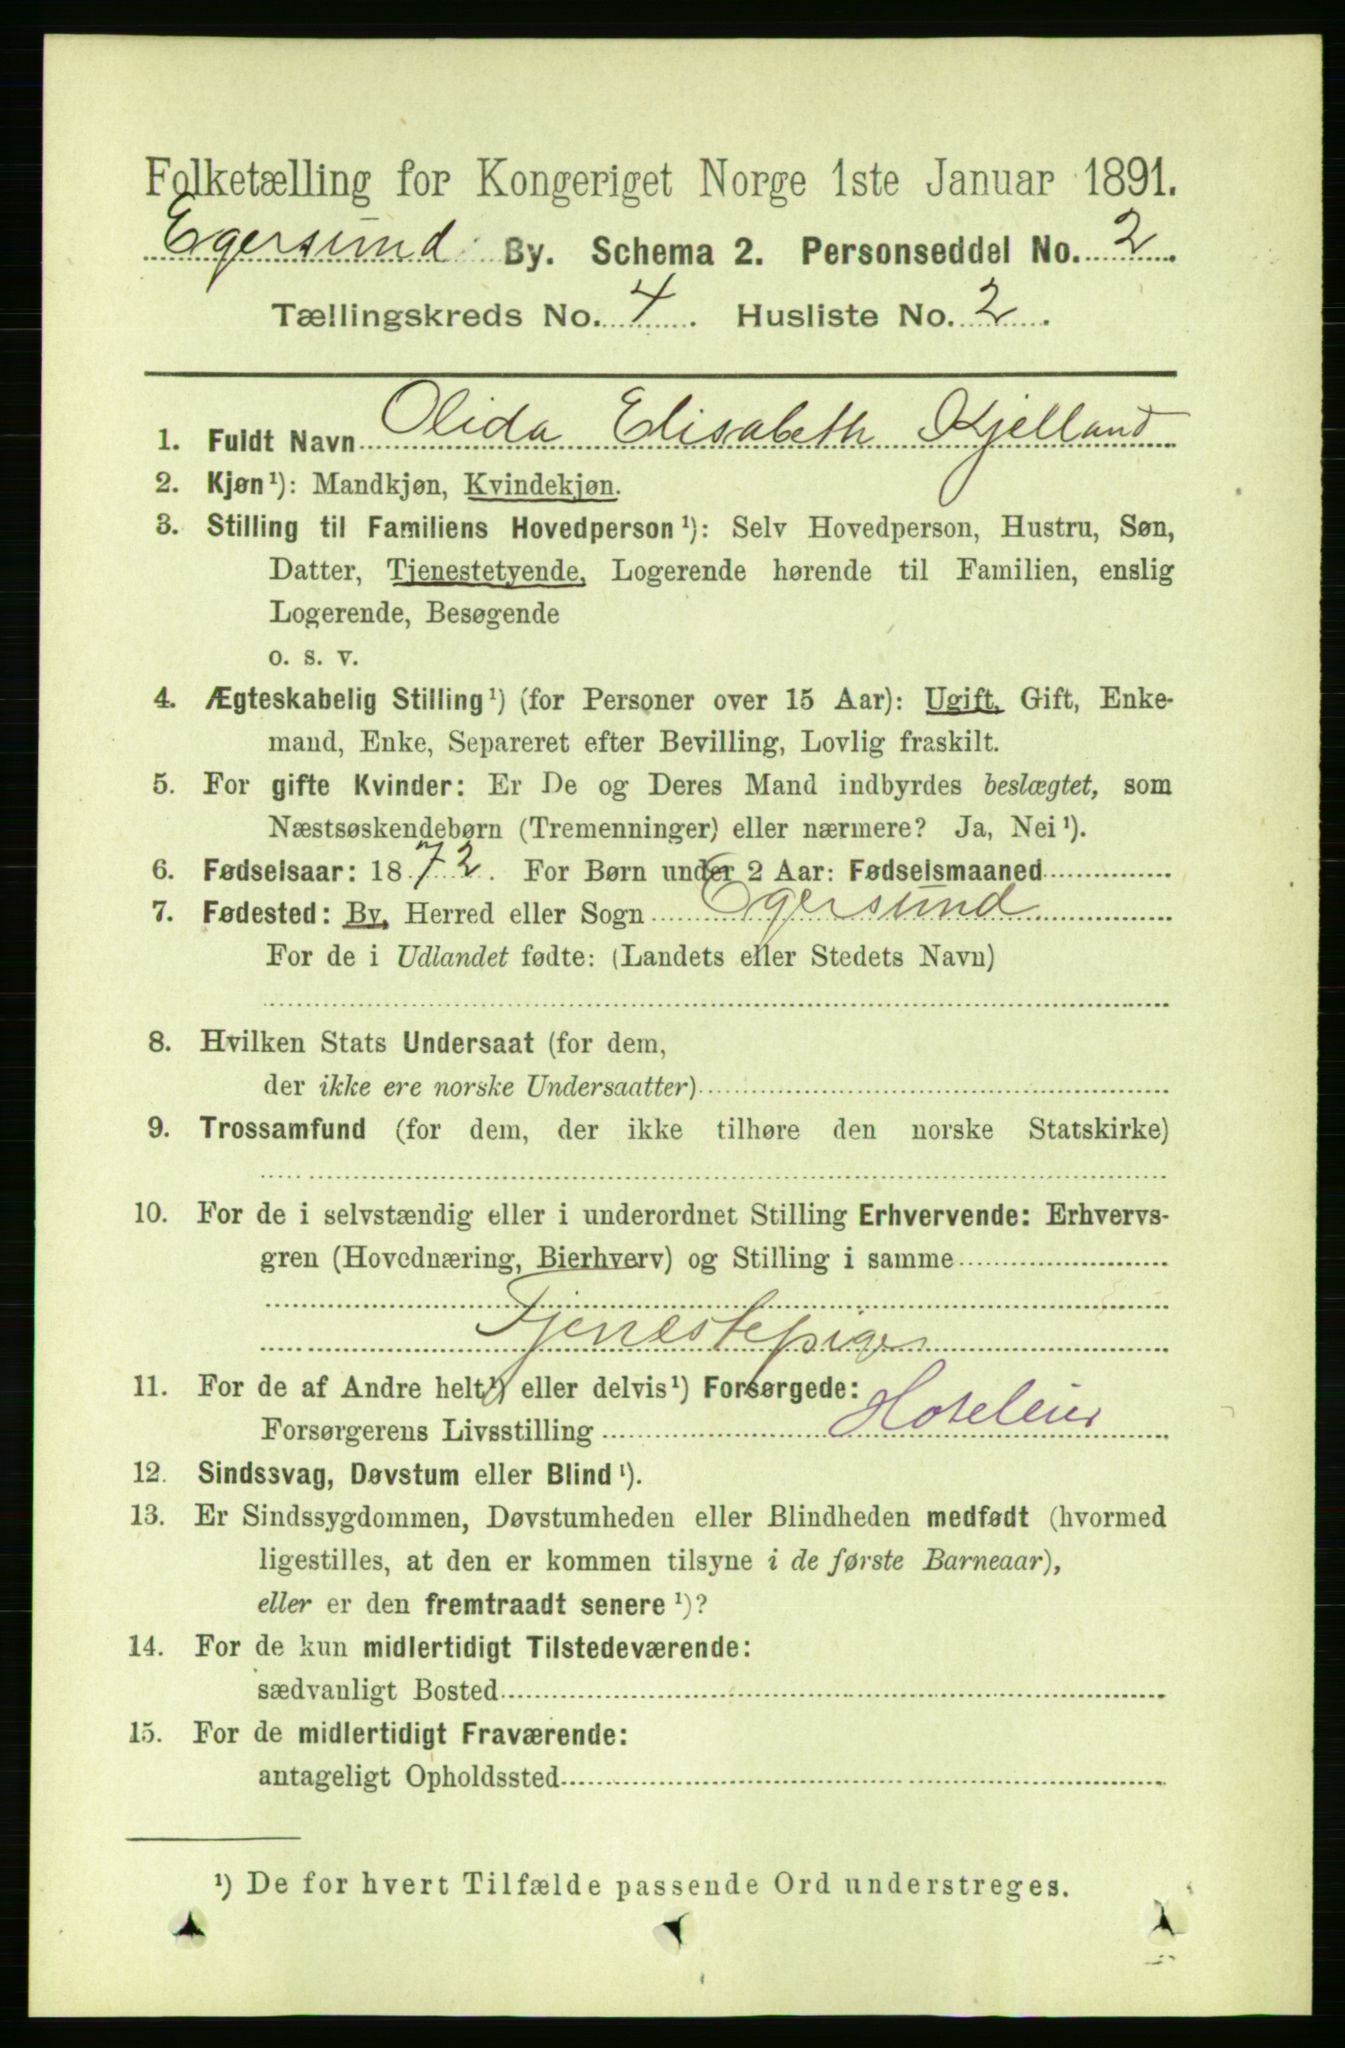 Folketælling for Kongeriget Norge 1ste Januar 1891.
Egersund By. Schema 2. Personseddel No. 2
Tællingskreds No. 4. Husliste No. 2.
1. Fuldt Navn Olida Elisabeth Kjelland
2. Kjøn¹): Mandkjøn, Kvindekjøn.
3. Stilling til Familiens Hovedperson¹): Selv Hovedperson, Hustru, Søn,
Datter, Tjenestetyende, Logerende hørende til Familien, enslig
Logerende, Besøgende
o. s. v.
4. Ægteskabelig Stilling¹) (for Personer over 15 Aar): Ugift, Gift, Enke-
mand, Enke, Separeret efter Bevilling, Lovlig fraskilt.
5. For gifte Kvinder: Er De og Deres Mand indbyrdes beslægtet, som
Næstsøskendebørn (Tremenninger) eller nærmere? Ja, Nei¹).
6. Fødselsaar: 1872. For Børn under 2 Aar: Fødselsmaaned
7. Fødested: By, Herred eller Sogn Egersund
For de i Udlandet fødte: (Landets eller Stedets Navn)
8. Hvilken Stats Undersaat (for dem,
der ikke ere norske Undersaatter)
9. Trossamfund (for dem, der ikke tilhøre den norske Statskirke)
10. For de i selvstændig eller i underordnet Stilling Erhvervende: Erhvervs-
gren (Hovednæring, Bierhverv) og Stilling i samme
Tjenestepige
11. For de af Andre helt¹) eller delvis¹) Forsørgede:
Forsørgerens Livsstilling Hoteleier
12. Sindssvag, Døvstum eller Blind¹).
13. Er Sindssygdommen, Døvstumheden eller Blindheden medfødt (hvormed
ligestilles, at den er kommen tilsyne i de første Barneaar),
eller er den fremtraadt senere¹)?
14. For de kun midlertidigt Tilstedeværende:
sædvanligt Bosted
15. For de midlertidigt Fraværende:
antageligt Opholdssted
¹) De for hvert Tilfælde passende Ord understreges.